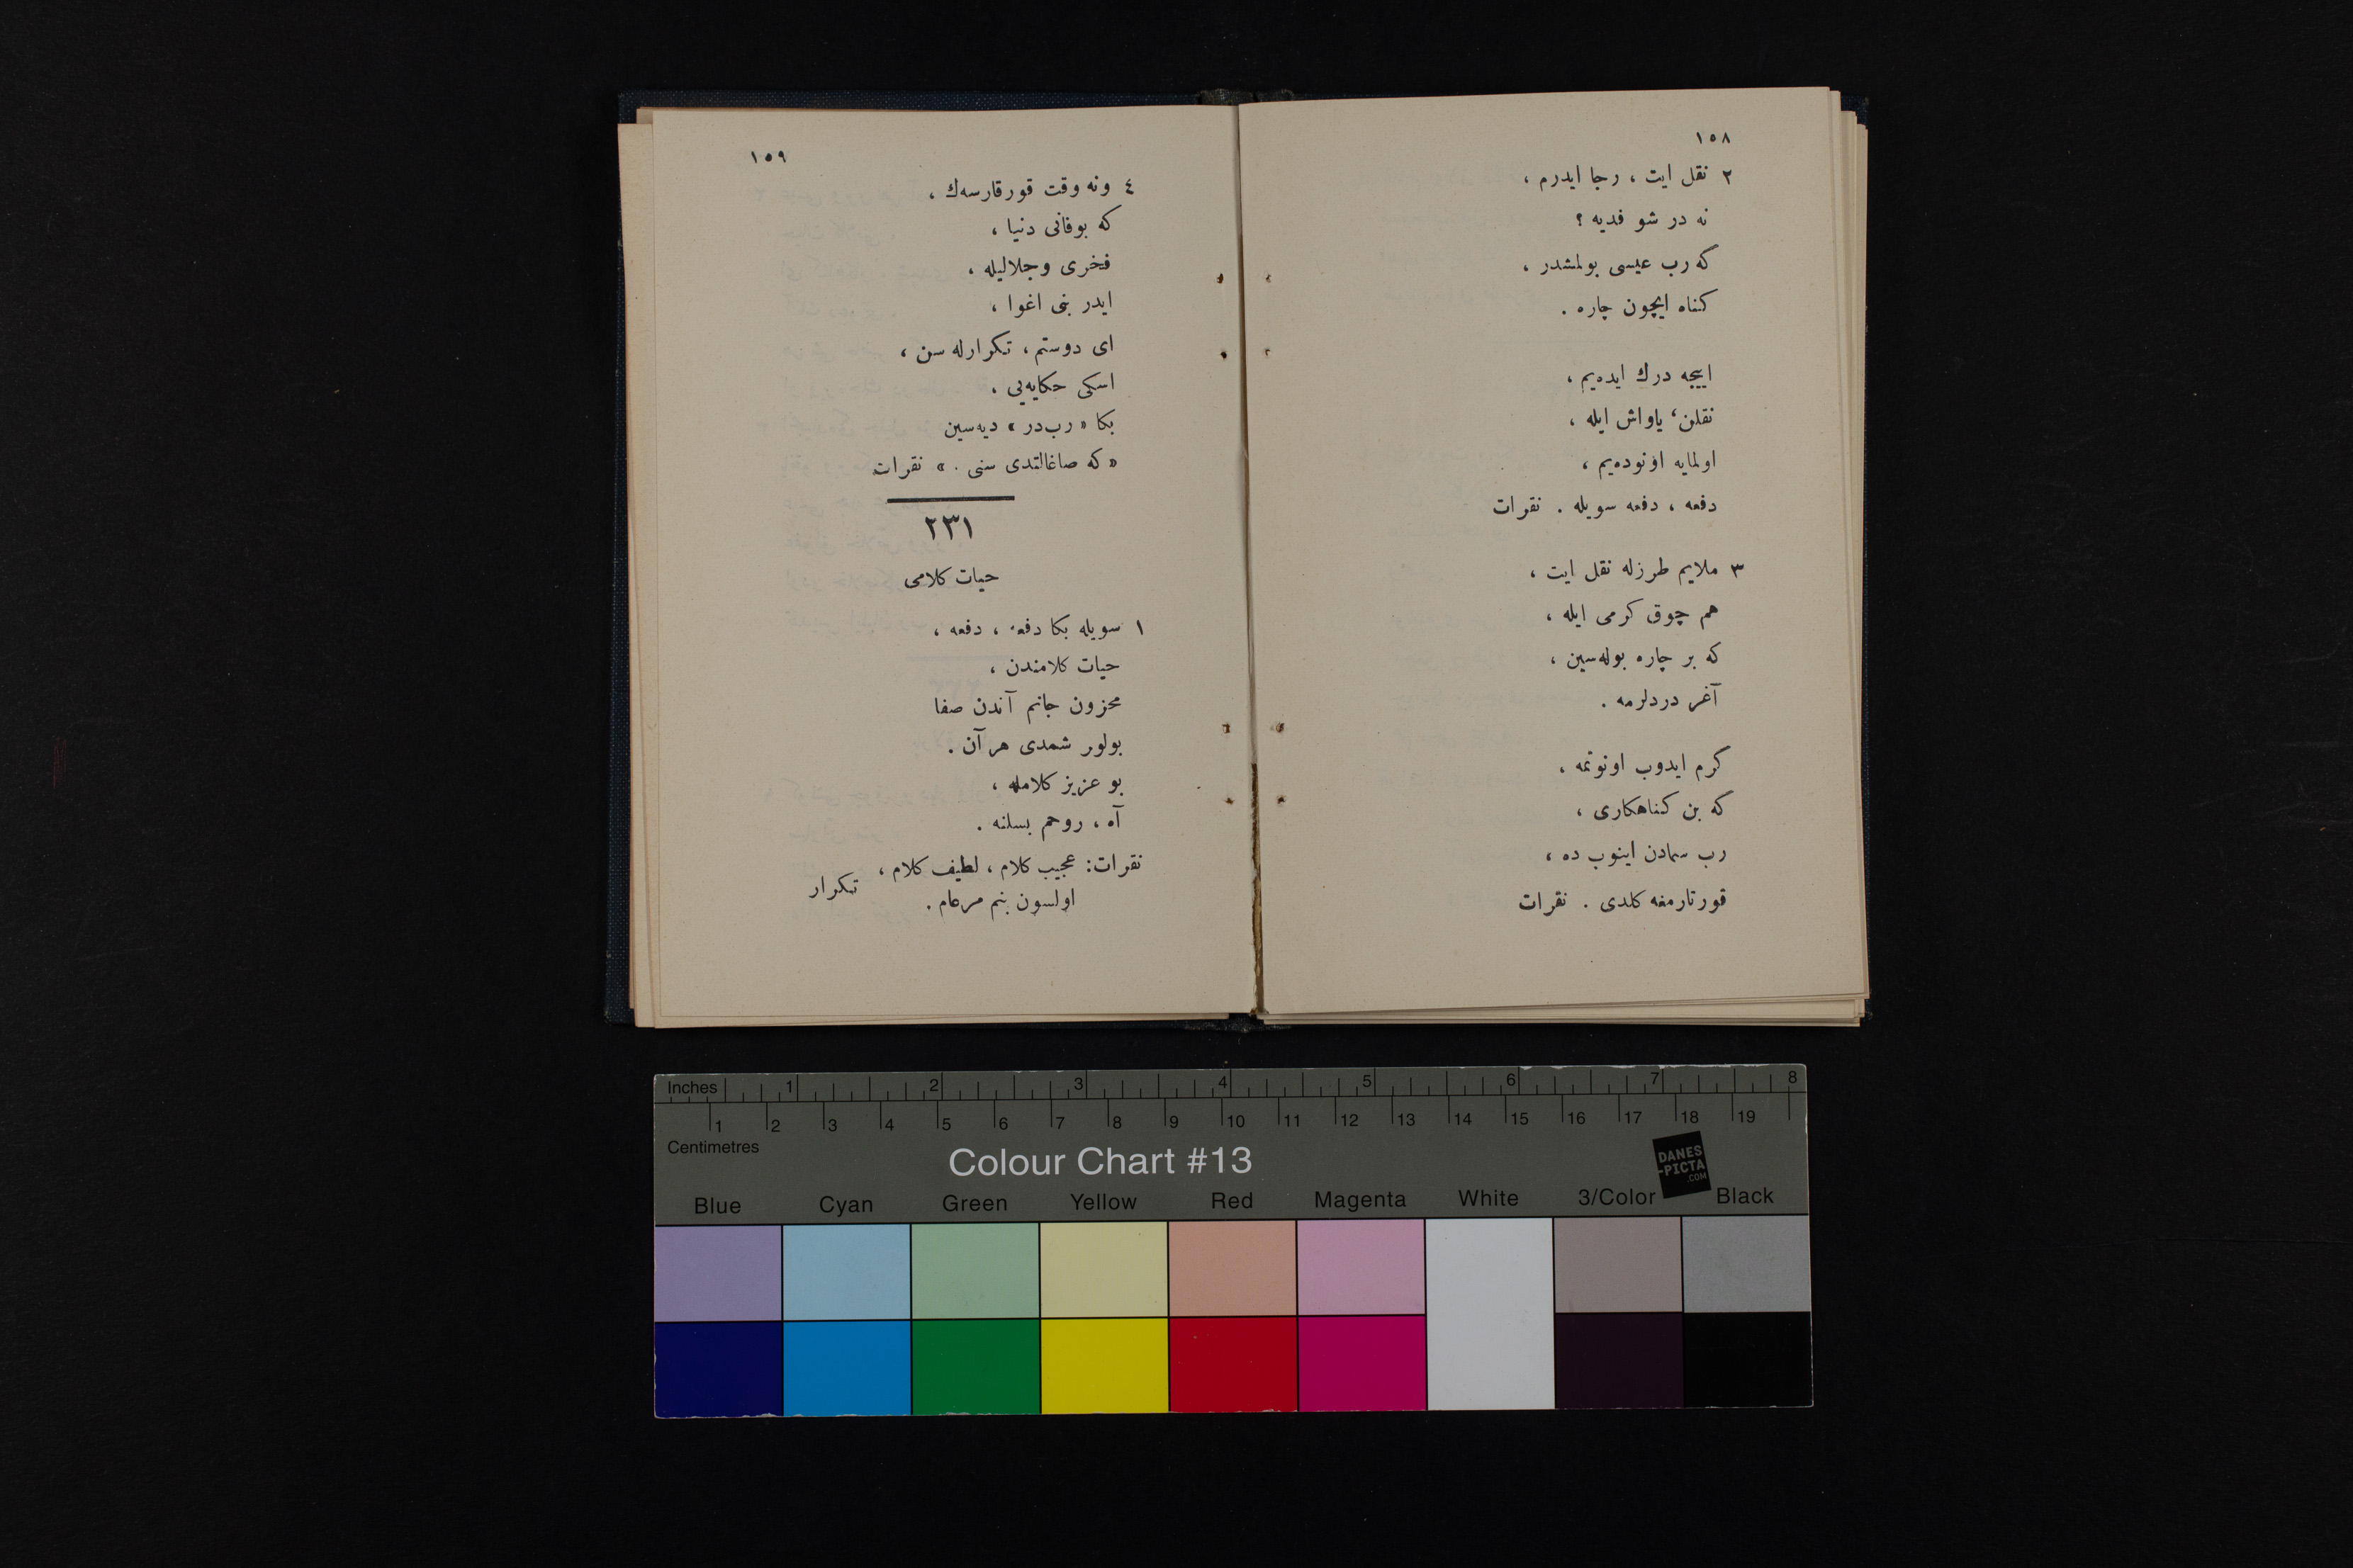 ١٥٨
٢ نقل ايت ، رجا ايدرم ،
نه در شو فديه ؟
كه رب عيسى بولمشدر ،
كناه ايچون چاره .
اييجه درك ايده‌يم ،
نقلن، ياواش ايله ،
اولمايه اونوده‌يم ،
دفعه ، دفعه سويله . نقرات
٣ ملايم طرزله نقل ايت ،
هم چوق كرمى ايله ،
كه بر چاره بوله‌سين ،
آغر دردلرمه .
كرم ايدوب اونوتمه ،
كه بن كناهكارى ،
رب سمادن اينوب ده ،
قورتارمغه كلدى . نقرات
١٥٩
٤ ونه وقت قورقارسه‌ك ،
كه بوفانى دنيا ،
فخرى وجلاليله ،
ايدر بنى اغوا ،
اى دوستم ، تكرارله سن ،
اسكى حكايه‌يى ،
بكا « رب‌در » ديه‌سين
« كه صاغالتدى سنى . » نقرات
٢٣١
حيات كلامى
١ سويله بكا دفعه ، دفعه ،
حيات كلامندن ،
محزون جانم آندن صفا
بولور شمدى هر آن .
بو عزيز كلامله ،
آه ، روحم بسلنه .
نقرات: عجيب كلام ، لطيف كلام ،
اولسون بنم مرعام . تكرار
Inches 1 2 3 4 5 6 7 8
1 2 3 4 5 6 7 8 9 10 11 12 13 14 15 16 17 18 19
Centimetres
Colour Chart #13
DANES
-PICTA
.COM
Blue Cyan Green Yellow Red Magenta White 3/Color Black